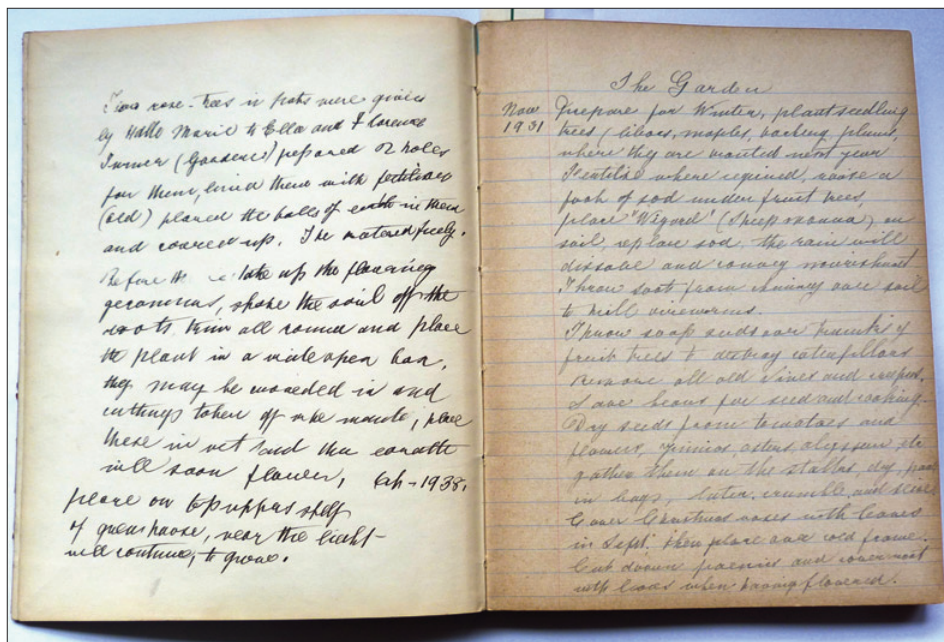 Two rose-trees in pots were given
by Hallo Marie to Ella and Florence
Turner (Gardener) prepared 2 holes
for them, lined them with fertilizer
(old) placed the balls of earth in them
and covered up. He watered freely.
Before the take up the flowering
geraniums, shake the soil off the
roots trim all round and place
the plant in a wide open box,
they may be crowded in and
cuttings taken off ; place
these in wet sand
will soon flower, 1938.
place on top upper shelf
of green house, near the light
will continue, to grow.
The Garden
Nov. Prepare for Winter, plant seedling
1931 trees, lilacs, maples, plums,
where they are wanted next year
Fertilise where required, raise a
of sod under fruit trees,
place "Wizard" (Sheep manure) on
soil, replace sod, the rain will
dissolve and convey nourishment
Throw soot from chimney over soil
to kill wireworms.
Throw soap suds over trunks of
fruit trees to destroy caterpillars
Remove all old vines and
Save beans for seed and cooking.
Dry seeds from tomatoes and
flowers, zinnias, asters, alyssum, etc
gather them on the stalks, dry,
in bags, later, crumble, and
Cover Christmas roses with leaves
in Sept. then place over cold frame.
Cut down paeonies and cover root
with leaves when having flowered.